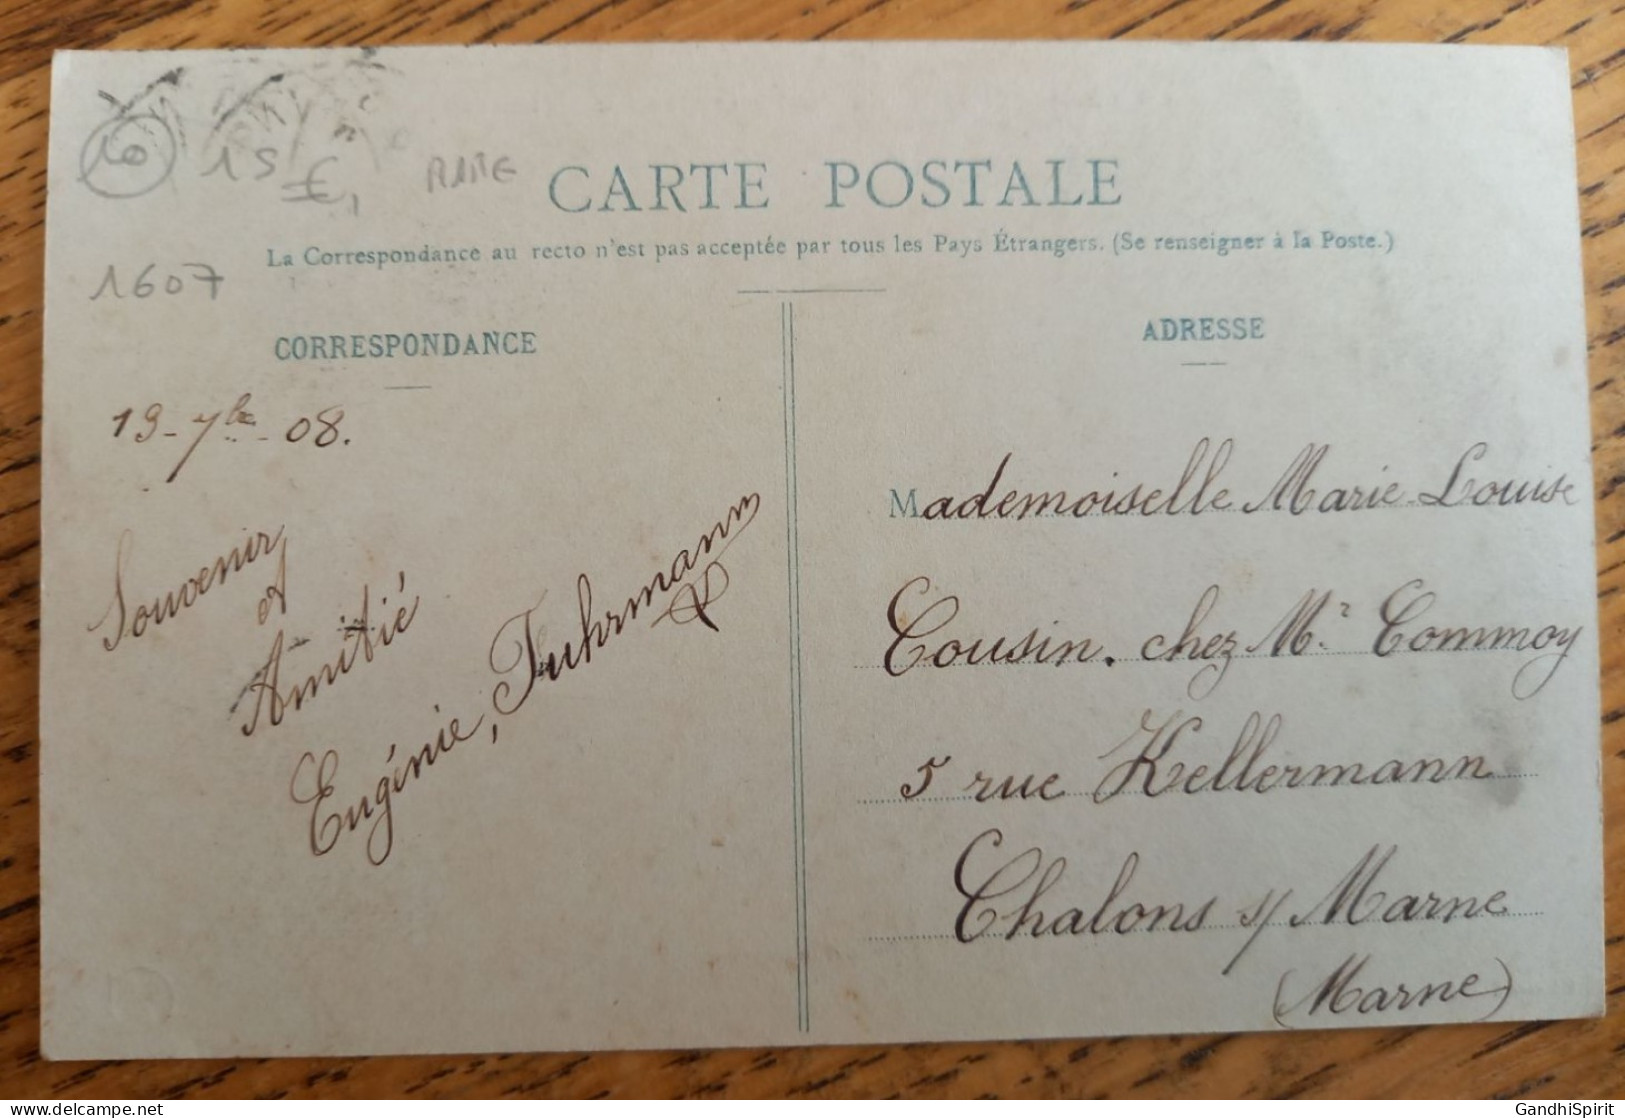 10
15 €
RARE
1607
CARTE POSTALE
La Correspondance au recto n'est pas acceptée par tous les Pays Étrangers. (Se renseigner à la Poste.)
CORRESPONDANCE
19 - 7bre - 08.
Souvenir
et
Amitié
Eugénie, Fuhrmann
ADRESSE
Mademoiselle Marie-Louise
Cousin. chez Mr. Commoy
5 rue Kellermann
Chalons s/ Marne
(Marne)
delcampe.net
GandhiSpirit